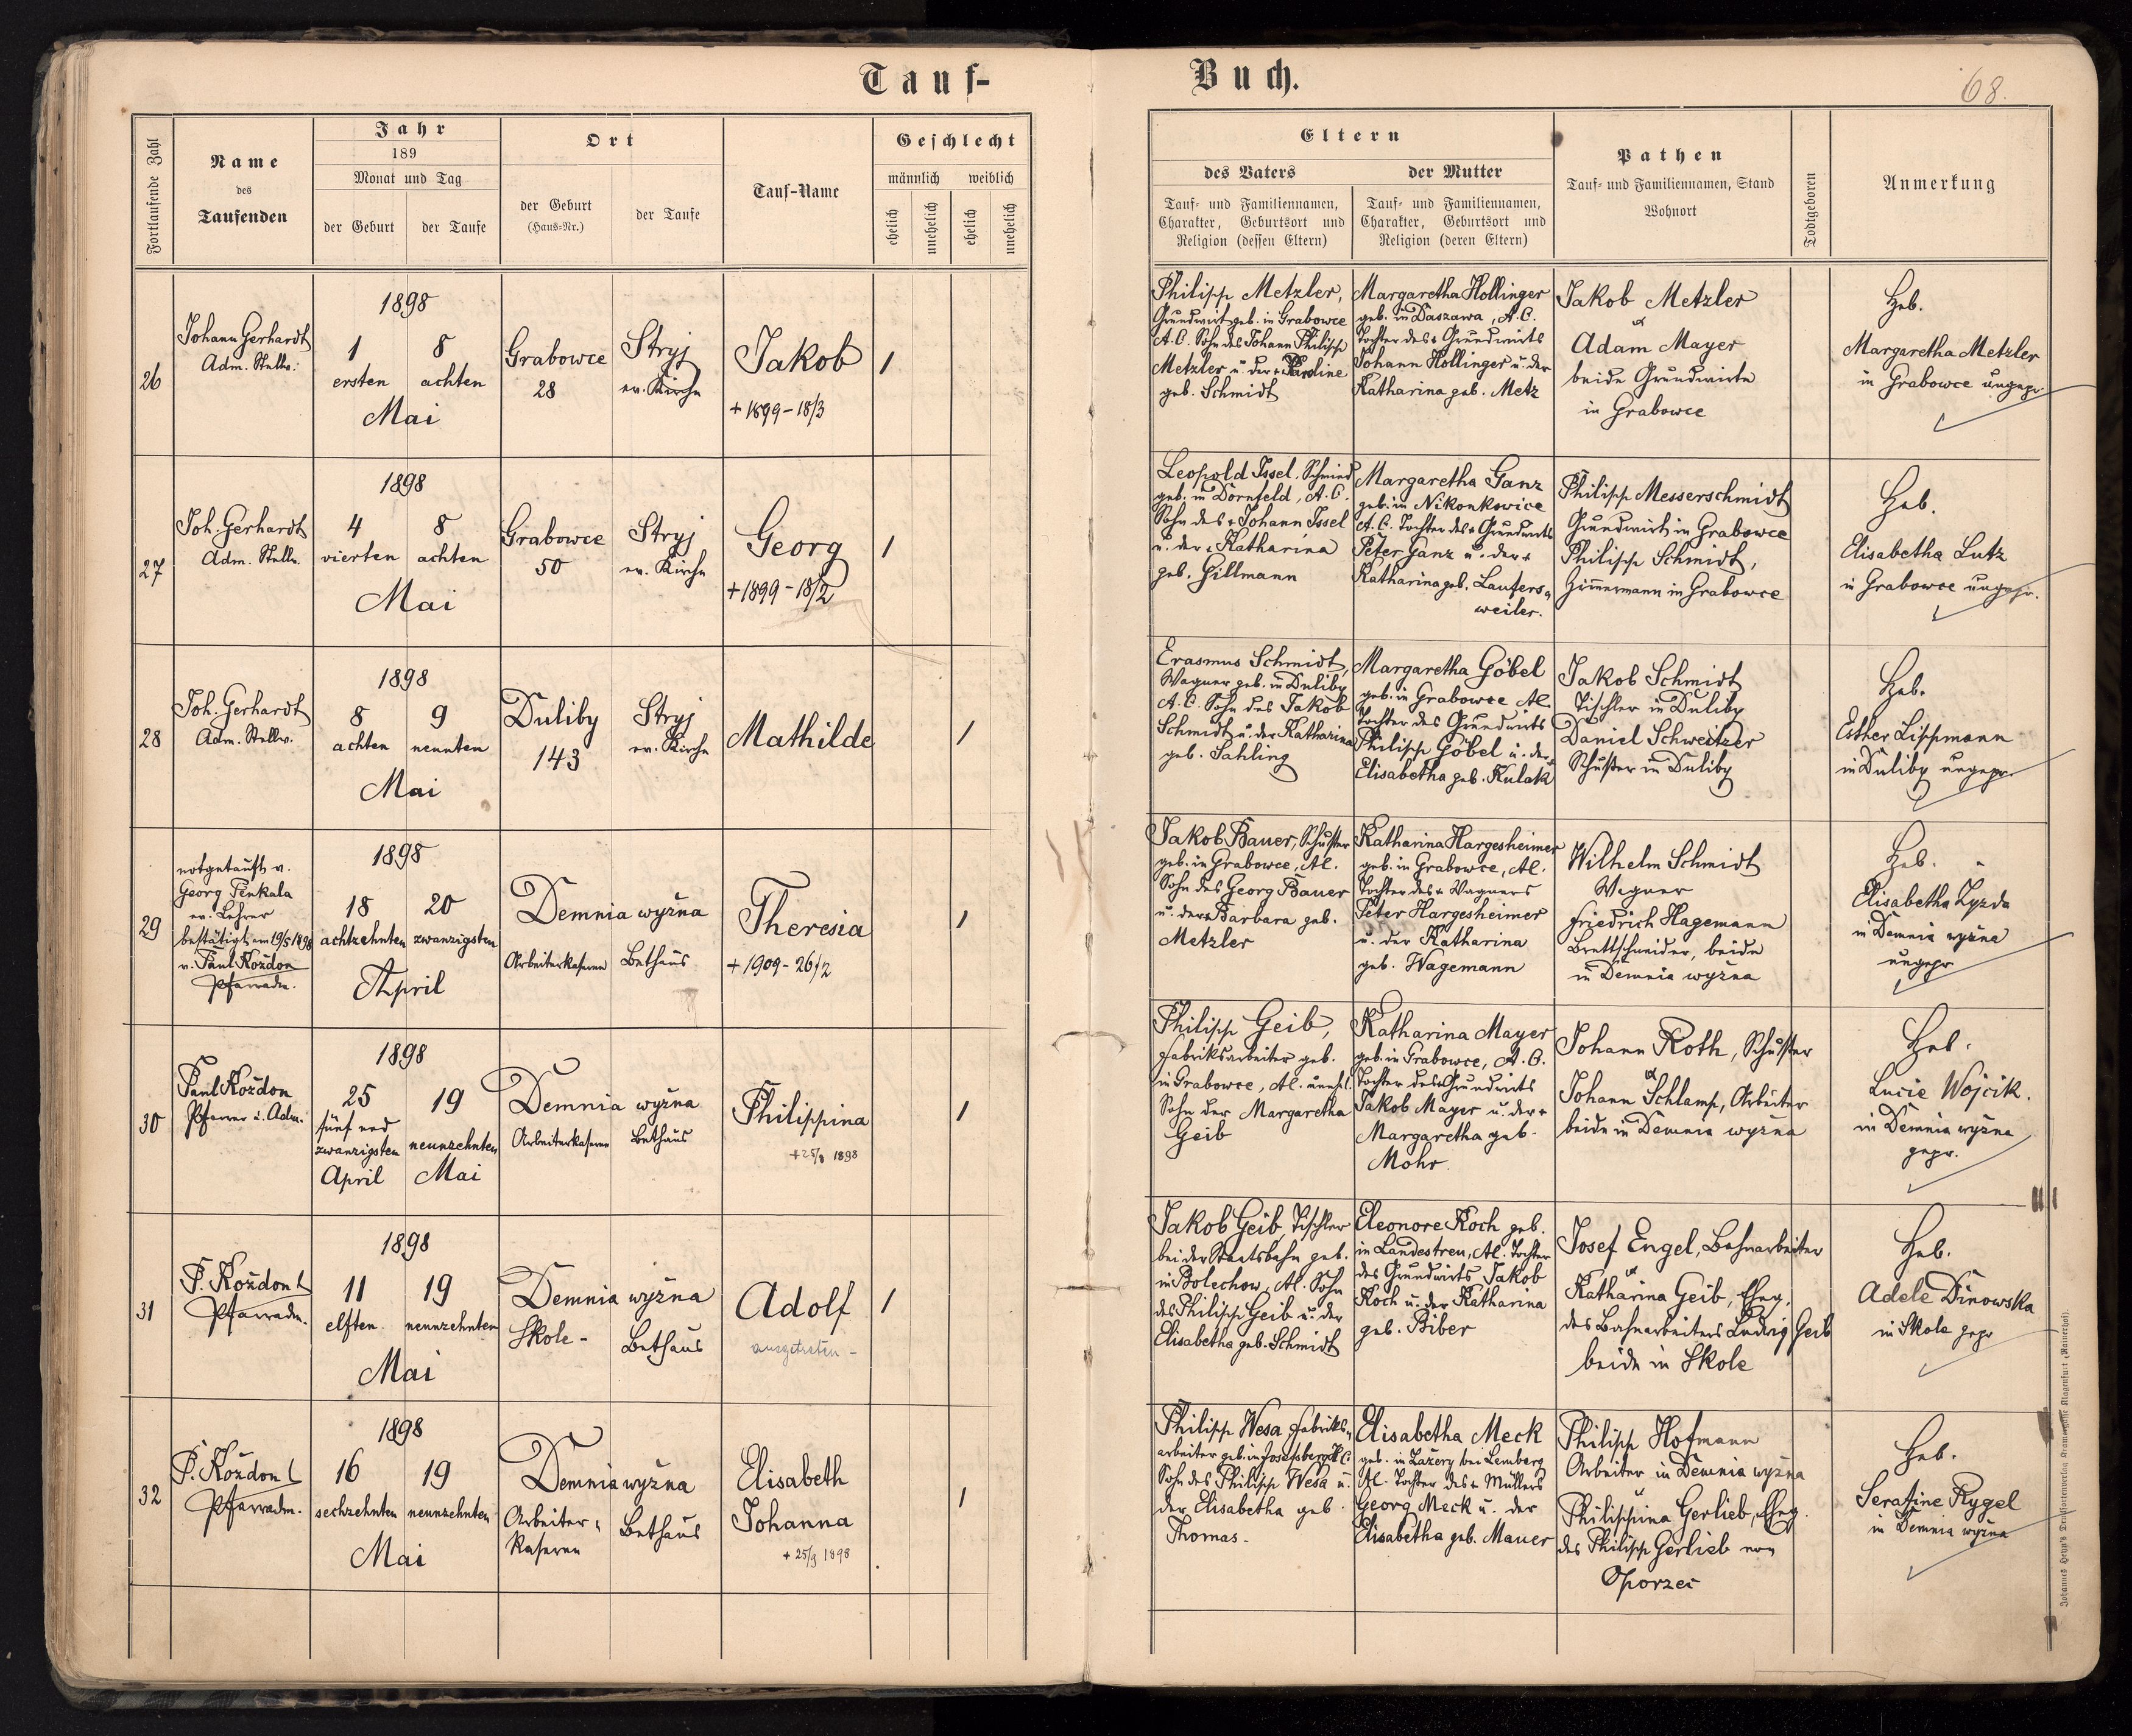 Tauf-
Buch.
68.
Fortlaufende Zahl
Name
des
Taufenden
Jahr
189
Monat und Tag
der Geburt
der Taufe
Ort
der Geburt
(Haus-Nr.)
der Taufe
Tauf-Name
Geschlecht
männlich
weiblich
ehelich
unehelich
ehelich
unehelich
Eltern
des Vaters
der Mutter
Tauf- und Familiennamen,
Charakter, Geburtsort und
Religion (dessen Eltern)
Tauf- und Familiennamen,
Charakter, Geburtsort und
Religion (deren Eltern)
Pathen
Tauf- und Familiennamen, Stand
Wohnort
Todtgeboren
Anmerkung
26
Johann Gerhardt
Adm. Stellv.
1898
1
8
ersten
achten
Mai
Grabowce
28
Stryj
ev. Kirche
Jakob
+ 1899 - 18/3
1
Philipp Metzler,
Grundwirt geb. in Grabowce
A.C. Sohn des Johann Philipp
Metzler u. der + Karoline
geb. Schmidt
Margaretha Hollinger
geb. in Daszawa, A.C.
Tochter des + Grundwirts
Johann Hollinger u. der
Katharina geb. Metz
Jakob Metzler
u
Adam Mayer
beide Grundwirte
in Grabowce
Heb.
Margaretha Metzler
in Grabowce ungepr.
27
Joh. Gerhardt
Adm. Stellv.
1898
4
8
vierten
achten
Mai
Grabowce
50
Stryj
ev. Kirche
Georg
+ 1899 - 18/2
1
Leopold Issel, Schmied
geb. in Dornfeld, A.C.
Sohn des + Johann Issel
u. der + Katharina
geb. Hillmann
Margaretha Ganz
geb. in Nikonkowice
A.C. Tochter des + Grundwirts
Peter Ganz u. der +
Katharina geb. Lauters-
weiler.
Philipp Messerschmidt
Grundwirt in Grabowce
Philipp Schmidt,
Zimmermann in Grabowce
Heb.
Elisabetha Lutz
in Grabowce ungepr.
28
Joh. Gerhardt
Adm. Stellv.
1898
8
9
achten
neunten
Mai
Duliby
143
Stryj
ev. Kirche
Mathilde
1
Erasmus Schmidt,
Wagner geb. in Duliby
A.C. Sohn des Jakob
Schmidt u. der Katharina
geb. Sahling
Margaretha Göbel
geb. in Grabowce AC.
Tochter des Grundwirts
Philipp Göbel u. der +
Elisabetha geb. Kulak
Jakob Schmidt
Tischler in Duliby
Daniel Schweitzer
Schuster in Duliby
Heb.
Esther Lippmann
in Duliby ungepr.
29
notgetauft v.
Georg Penkala
ev. Lehrer
bestätigt am 19/5 1898
v. Paul Kozdon
Pfarradm.
1898
18
20
achtzehnten
zwanzigsten
April
Demnia wyżna
Arbeiterkaserne
Bethaus
Theresia
+ 1909 - 26/2
1
Jakob Bauer, Schuster
geb. in Grabowce, AC.
Sohn des Georg Bauer
u. der + Barbara geb.
Metzler
Katharina Hargesheimer
geb. in Grabowce, AC.
Tochter des + Wagners
Peter Hargesheimer
u. der Katharina
geb. Wagemann
Wilhelm Schmidt
Wagner
Friedrich Hagemann
Brettschneider, beide
in Demnia wyżna
Heb.
Elisabetha
in Demnia wyżna
ungepr
30
Paul Kozdon
Pfarrer u. Adm.
1898
25
19
fünf und
zwanzigsten
neunzehnten
April
Mai
Demnia wyżna
Arbeiterkaserne
Bethaus
Philippina
1898
1
Philipp Geib,
Fabriksarbeiter geb.
in Grabowce, AC. unehel.
Sohn der Margaretha
Geib
Katharina Mayer
geb. in Grabowce, A.C.
Tochter des + Grundwirts
Jakob Mayer u. der +
Margaretha geb.
Mohr.
Johann Roth, Schuster
u
Johann Schlamp, Arbeiter
beide in Demnia wyżna
Heb.
Lucie Wojcik.
in Demnia wyżna
gepr.
31
P. Kozdon
Pfarradm.
1898
11
19
elften
neunzehnten
Mai
Demnia wyżna
Skole -
Bethaus
Adolf
ausgetreten -
1
Jakob Geib, Tischler
bei der Staatsbahn geb.
in Bolechow, AC. Sohn
des Philipp Geib u. der
Elisabetha geb. Schmidt
Eleonore Koch geb.
in Landestreu, AC. Tochter
des Grundwirts Jakob
Koch u. der Katharina
geb. Biber
Josef Engel, Bahnarbeiter
u
Katharina Geib, Eheg.
des Bahnarbeiters Ludwig Geib
beide in Skole
Heb.
Adele Dinowska
in Skole gepr
32
P. Kozdon
Pfarradm.
1898
16
19
sechzehnten
neunzehnten
Mai
Demnia wyżna
Arbeiter-
kaserne
Bethaus
Elisabeth
Johanna
1898
1
Philipp Wesa, Fabriks-
arbeiter geb. in Josefsberg A.C.
Sohn des Philipp Wesa u.
der Elisabetha geb.
Thomas.
Elisabetha Meck
geb. in Lazery bei Lemberg
AC. Tochter des + Müllers
Georg Meck u. der
Elisabetha geb. Mauer
Philipp Hofmann
Arbeiter in Demnia wyżna
u
Philippina Gerlieb, Eheg.
des Philipp Gerlieb von
Oporzec
Heb.
Serafine Rygel
in Demnia wyżna